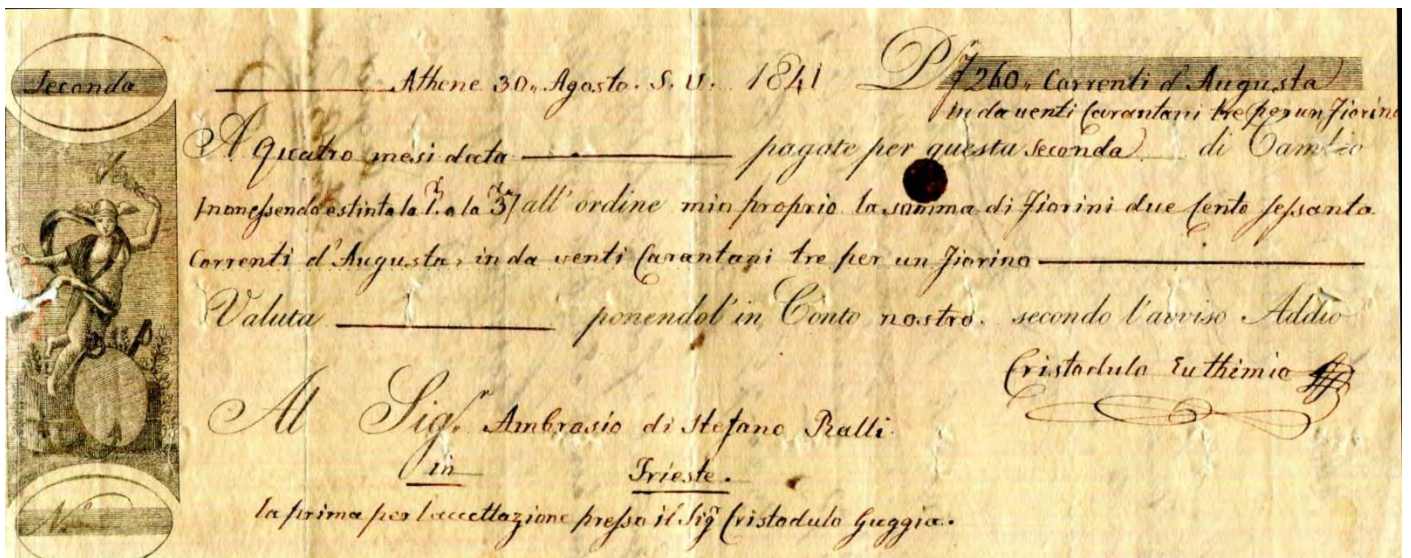 Seconda
Athene 30,, Agosto. S. V. 1841 Pf 260,, Correnti d'Augusta
in da venti Carantani tre per un Fiorino
A quatro mesi data pagate per questa Seconda di Cambio
/nonessendo estinta la 1.a o la 3a/ all'ordine mio proprio la somma di Fiorini due Cento sessanta
Correnti d'Augusta, in da venti Carantani tre per un Fiorino
Valuta ponendol' in Conto nostro. secondo l'avviso Addio
Cristodulo Euthimio
Al Sigr. Ambrosio di Stefano Ralli.
in Trieste.
la prima per l'accettazione presso il Sigr Cristodulo Guggia.
N.